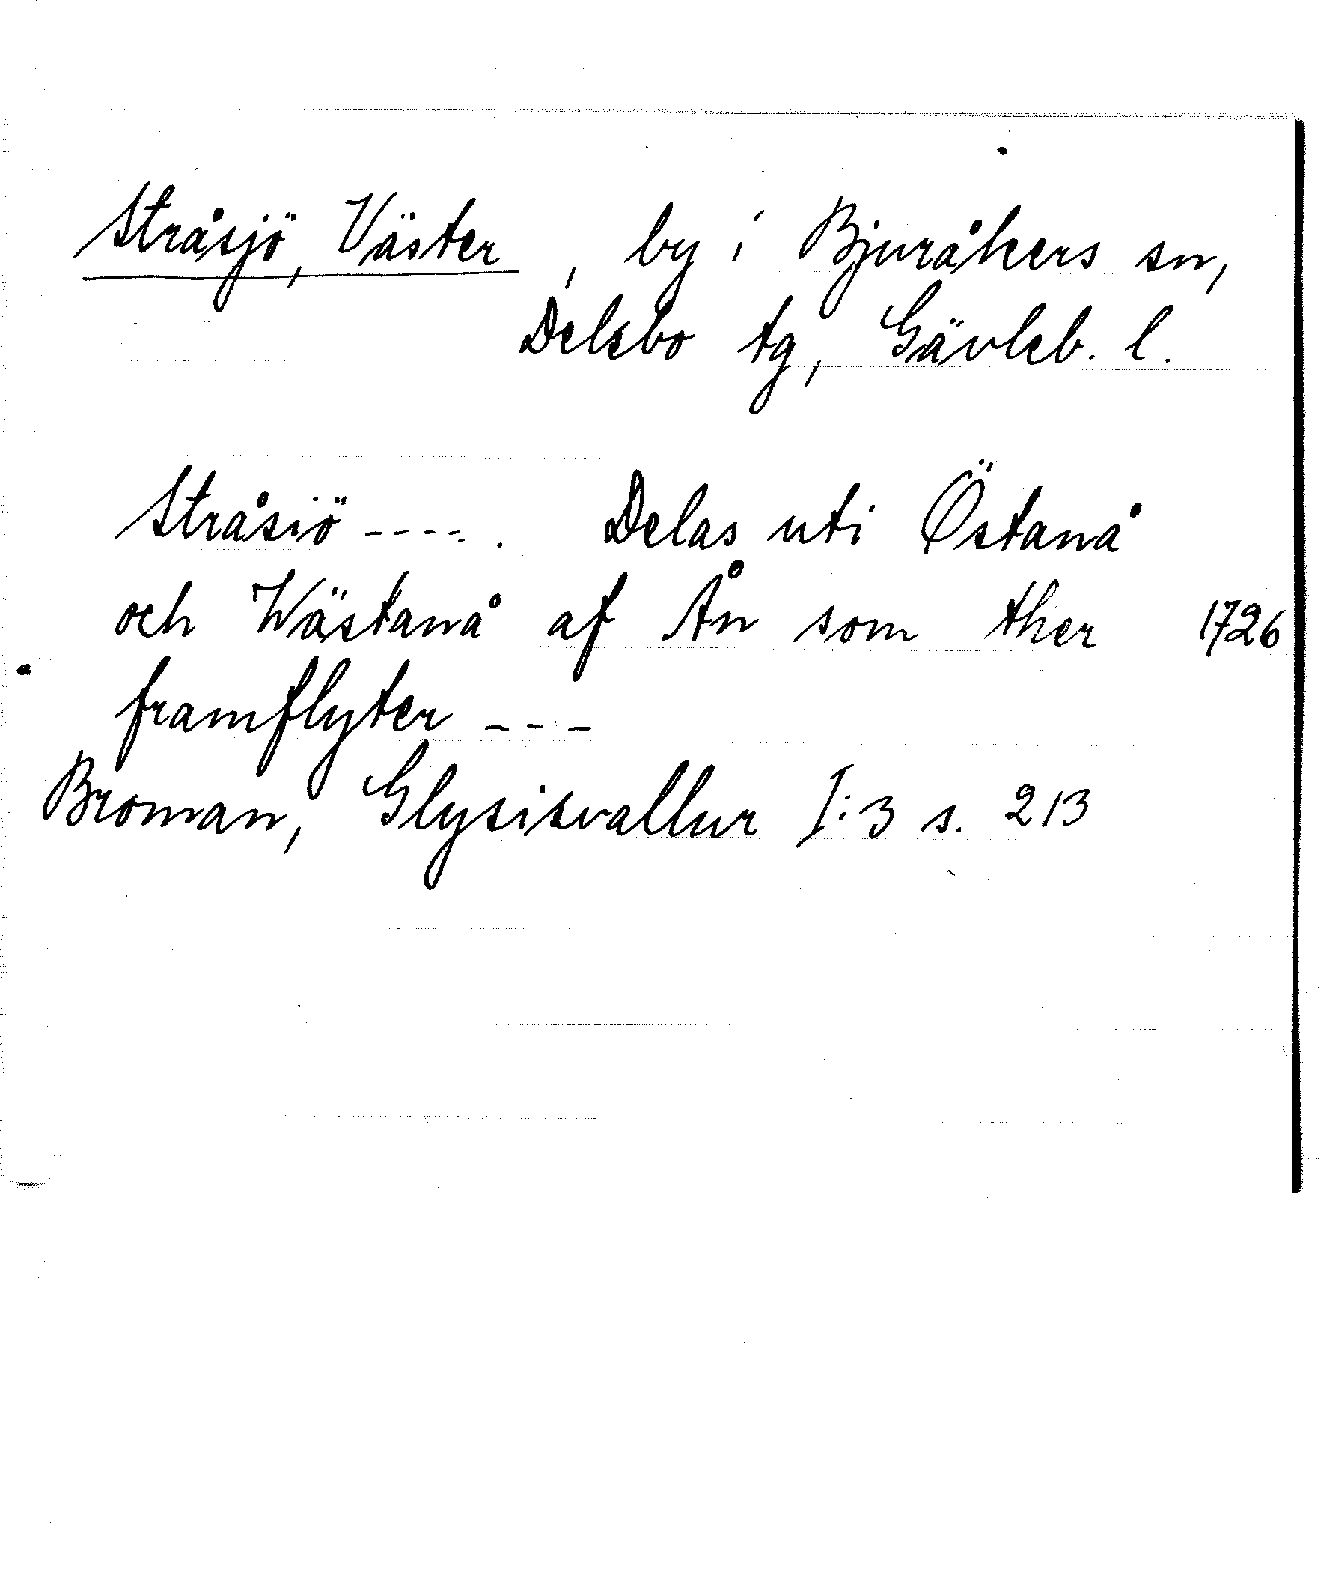 Stråsjö, Väster, by i Bjuråkers sn,
Delsbo tg, Gävleb. l.
Stråsiö ----. Delas uti Östanå
och Wästanå af Ån som ther 1726
framflyter ---
Broman, Glysisvallur I:3 s. 213